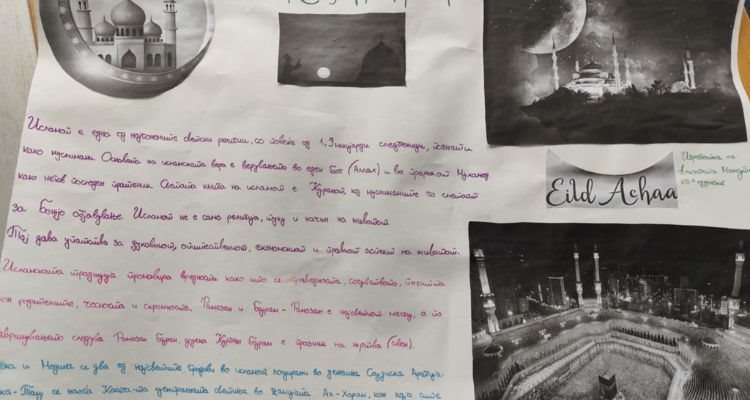 Исламот е една од најголемите светски религии, со повеќе од 1,9 милијарди следбеници, познати
како муслимани. Основата на исламската вера е верувањето во еден Бог (Алах) и во пророкот Мухамед
како негов последен пратеник. Светата книга на исламот е Куранот, кој муслиманите го сметаат
за Божјо објавување. Исламот не е само религија, туку и начин на животот.
Тој дава упатства за духовниот, општествениот, економскиот и правниот аспект на животот.
Исламската традиција промовира вредности како што се праведноста, сочувството, почитта
кон родителите, чесноста и скромноста. Рамазан и Бајрам - Рамазан е најсветиот месец, а по
завршувањето следува Рамазан Бајрам, додека Курбан Бајрам е празник на жртва (овен).
Мека и Медина се два од најсветите градови во исламот, лоцирани во денешна Саудиска Арабија.
Мека - Таму се наоѓа Кабата - централната светиња во џамијата Ал-Харам, кон која сите
Изработка на:
VIII-я одделение
Eild Achaa